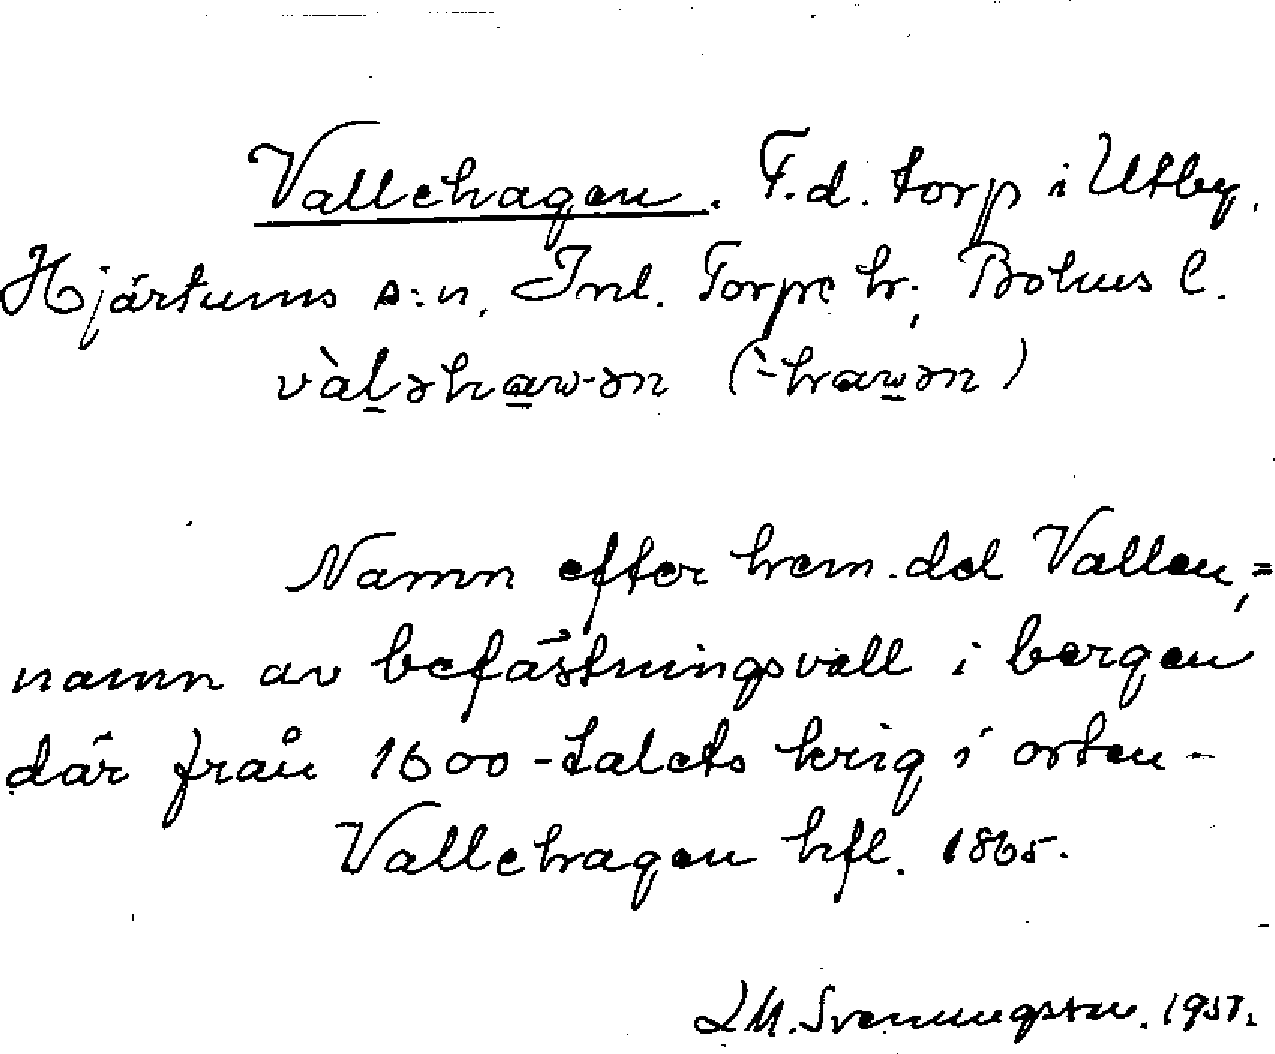 Vallehagen. F.d. torp i Utby,
Hjärtums s:n, Inl. Torpe hr, Bohus l.
vàl̠əha̠w-ən (-̀haw̠ən)
Namn efter hem.del Vallen, =
namn av befästningsvall i bergen
där från 1600-talets krig i orten -
Vallehagen hfl. 1865.
LM. Svenungsson. 1957.